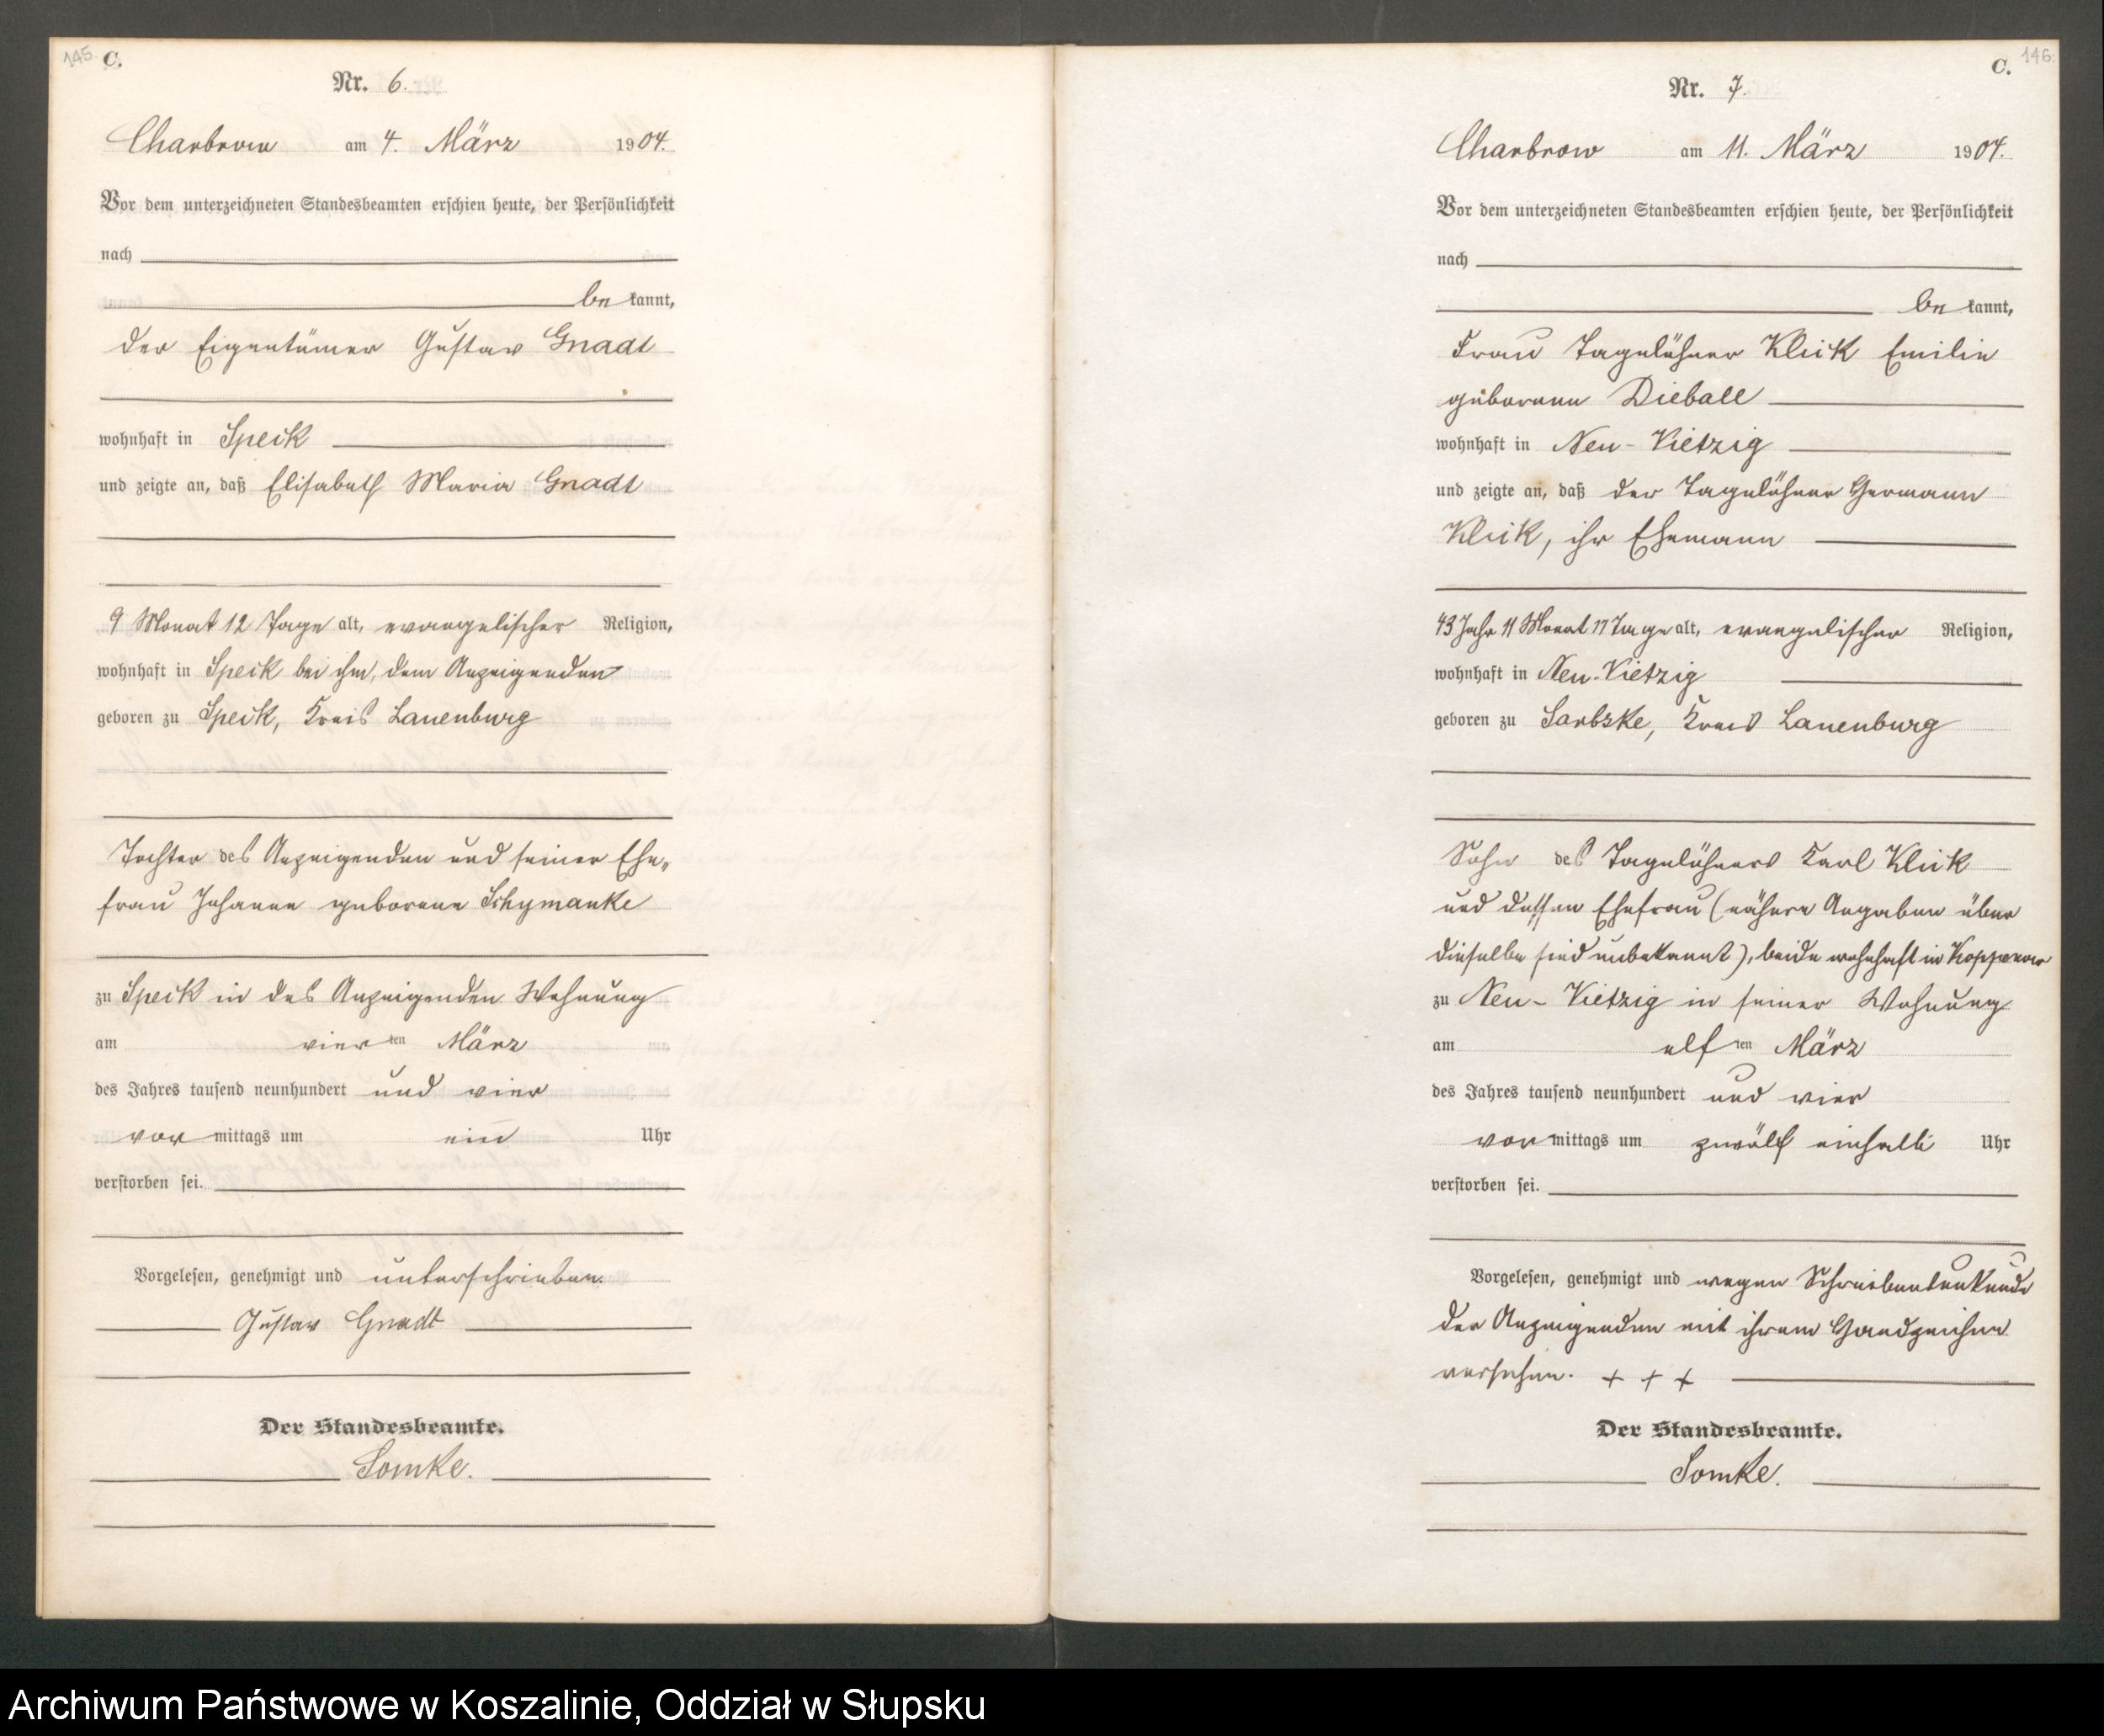 145.
C.
Nr. 6.
Charbrow am 4. März 1904.
Vor dem unterzeichneten Standesbeamten erschien heute, der Persönlichkeit
nach
be kannt,
der Eigentümer Gustav Gnadt
wohnhaft in Speck
und zeigte an, daß Elisabeth Maria Gnadt
9 Monat 12 Tage alt, evangelischer Religion,
wohnhaft in Speck bei ihm, dem Anzeigenden
geboren zu Speck, Kreis Lauenburg
Tochter des Anzeigenden und seiner Ehe„
frau Johanne geborene Schymanke
zu Speck in des Anzeigenden Wohnung
am vierten März
des Jahres tausend neunhundert und vier
vor mittags um ein Uhr
verstorben sei.
Vorgelesen, genehmigt und unterschrieben.
Gustav Gnadt
Der Standesbeamte.
Somke.
C.
146.
Nr. 7.
Charbrow am 11. März 1904.
Vor dem unterzeichneten Standesbeamten erschien heute, der Persönlichkeit
nach
be kannt,
Frau Tagelöhner Klick Emilie
geborene Dieball
wohnhaft in Neu-Vietzig
und zeigte an, daß der Tagelöhner Hermann
Klick, ihr Ehemann
43 Jahr 11 Monat 17 Tage alt, evangelischer Religion,
wohnhaft in Neu-Vietzig
geboren zu Sarbske, Kreis Lauenburg
Sohn des Tagelöhners Karl Klick
und dessen Ehefrau (nähere Angaben über
dieselbe sind unbekannt), beide wohnhaft in Koppenow
zu Neu-Vietzig in seiner Wohnung
am elften März
des Jahres tausend neunhundert und vier
vor mittags um zwölf einhalb Uhr
verstorben sei.
Vorgelesen, genehmigt und wegen Schreibensunkunde
der Anzeigenden mit ihrem Handzeichen
versehen. + + +
Der Standesbeamte.
Somke.
Archiwum Państwowe w Koszalinie, Oddział w Słupsku